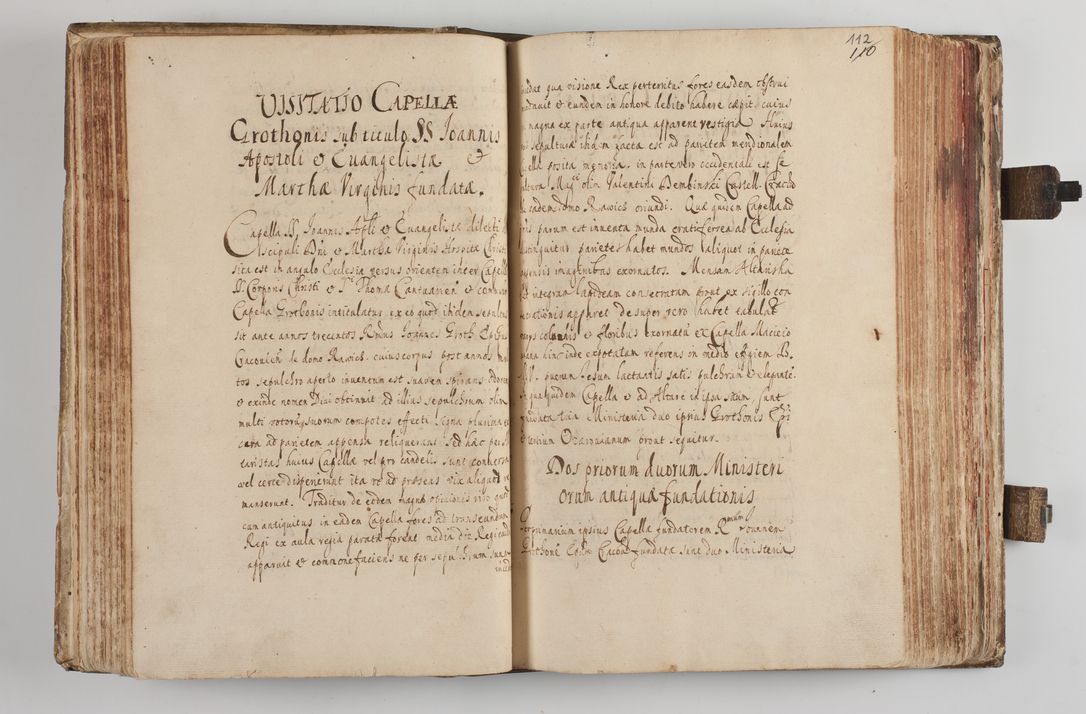 VISITATIO CAPELLÆ
Grothonis sub titulo SS Joannis
Apostoli et Euangelistæ et
Marthæ Virginis fundatæ.
Capella SS. Joannis Apli et Euangelistæ dilecti
discipuli Dni et Marthæ Virginis Hospitæ Christi
sita est in angulo Ecclesiæ versus orientem inter Capell
SS Corporis Christi et S. Thomæ Cantuarien et
Capella Grothonis intitulatur ex eo quod ibidem sepultus
sit ante annos trecentos Rmus Joannes Groth Epus
Cracouien de domo Rawicz. cuius corpus post annos mul
tos sepulchro aperto inuentum est suauem spirans odorem
et exinde nomen Diui obtinuit ad illius sepulchrum olim
multi votorum suorum compotes effecti signa plurima
ad parietem appensa reliquerunt Sed hæc per
huius Capellæ vel pro candelis sunt conuersa
vel certe disperierunt ita vt ad præsens vix aliquod re
manserunt. Traditur de eodem magnæ opinionis viro quod
cum antiquitus in eadem Capella fores ad transeundum
Regi ex aula regia paratæ forent media die Regi
apparuit et commonefaciens ne per sepulchrum suum
112
110
qua visione Rex perterritus fores easdem obstrui
mandauit et eundem in honore debito habere cæpit cuius
magna ex parte antiqua apparent vestigia Huius
sepultura ibidem iacta est ad parietem meridionalem
posita memoria. in parte vero occidentali est Se
pultura Magci olim Valentini Dembinski Castell Craco
eadem domo Rawicz oriundi. Quæ quidem Capella ad
parum est inuenta munda cratis ferreis ab Ecclesia
distinguitur parietes habet mundos aliquot in pariete
imaginibus exornatos. Mensam Altaris ha
bet integram lapideam consecratam prout ex sigillo con
secrationis apparet desuper vero habet tabulam
columnis et floribus exornatam ex Capella Macieio
hinc inde exportatam referens in medio effigiem B.
M V. puerum Jesum lactantis satis pulchram et elegante.
In qua quidem Capella et ad Altare in ipsa situm sunt
fundata tria Ministeria duo ipsius Grothonis Epi
tertium Ocanouanum prout sequitur.
Dos priorum duorum Ministeri
orum antiquæ fundationis
Per primarium ipsius Capellæ fundatorem Rmum Joannem
Grothonem Epum Cracou fundata sunt duo Ministeria